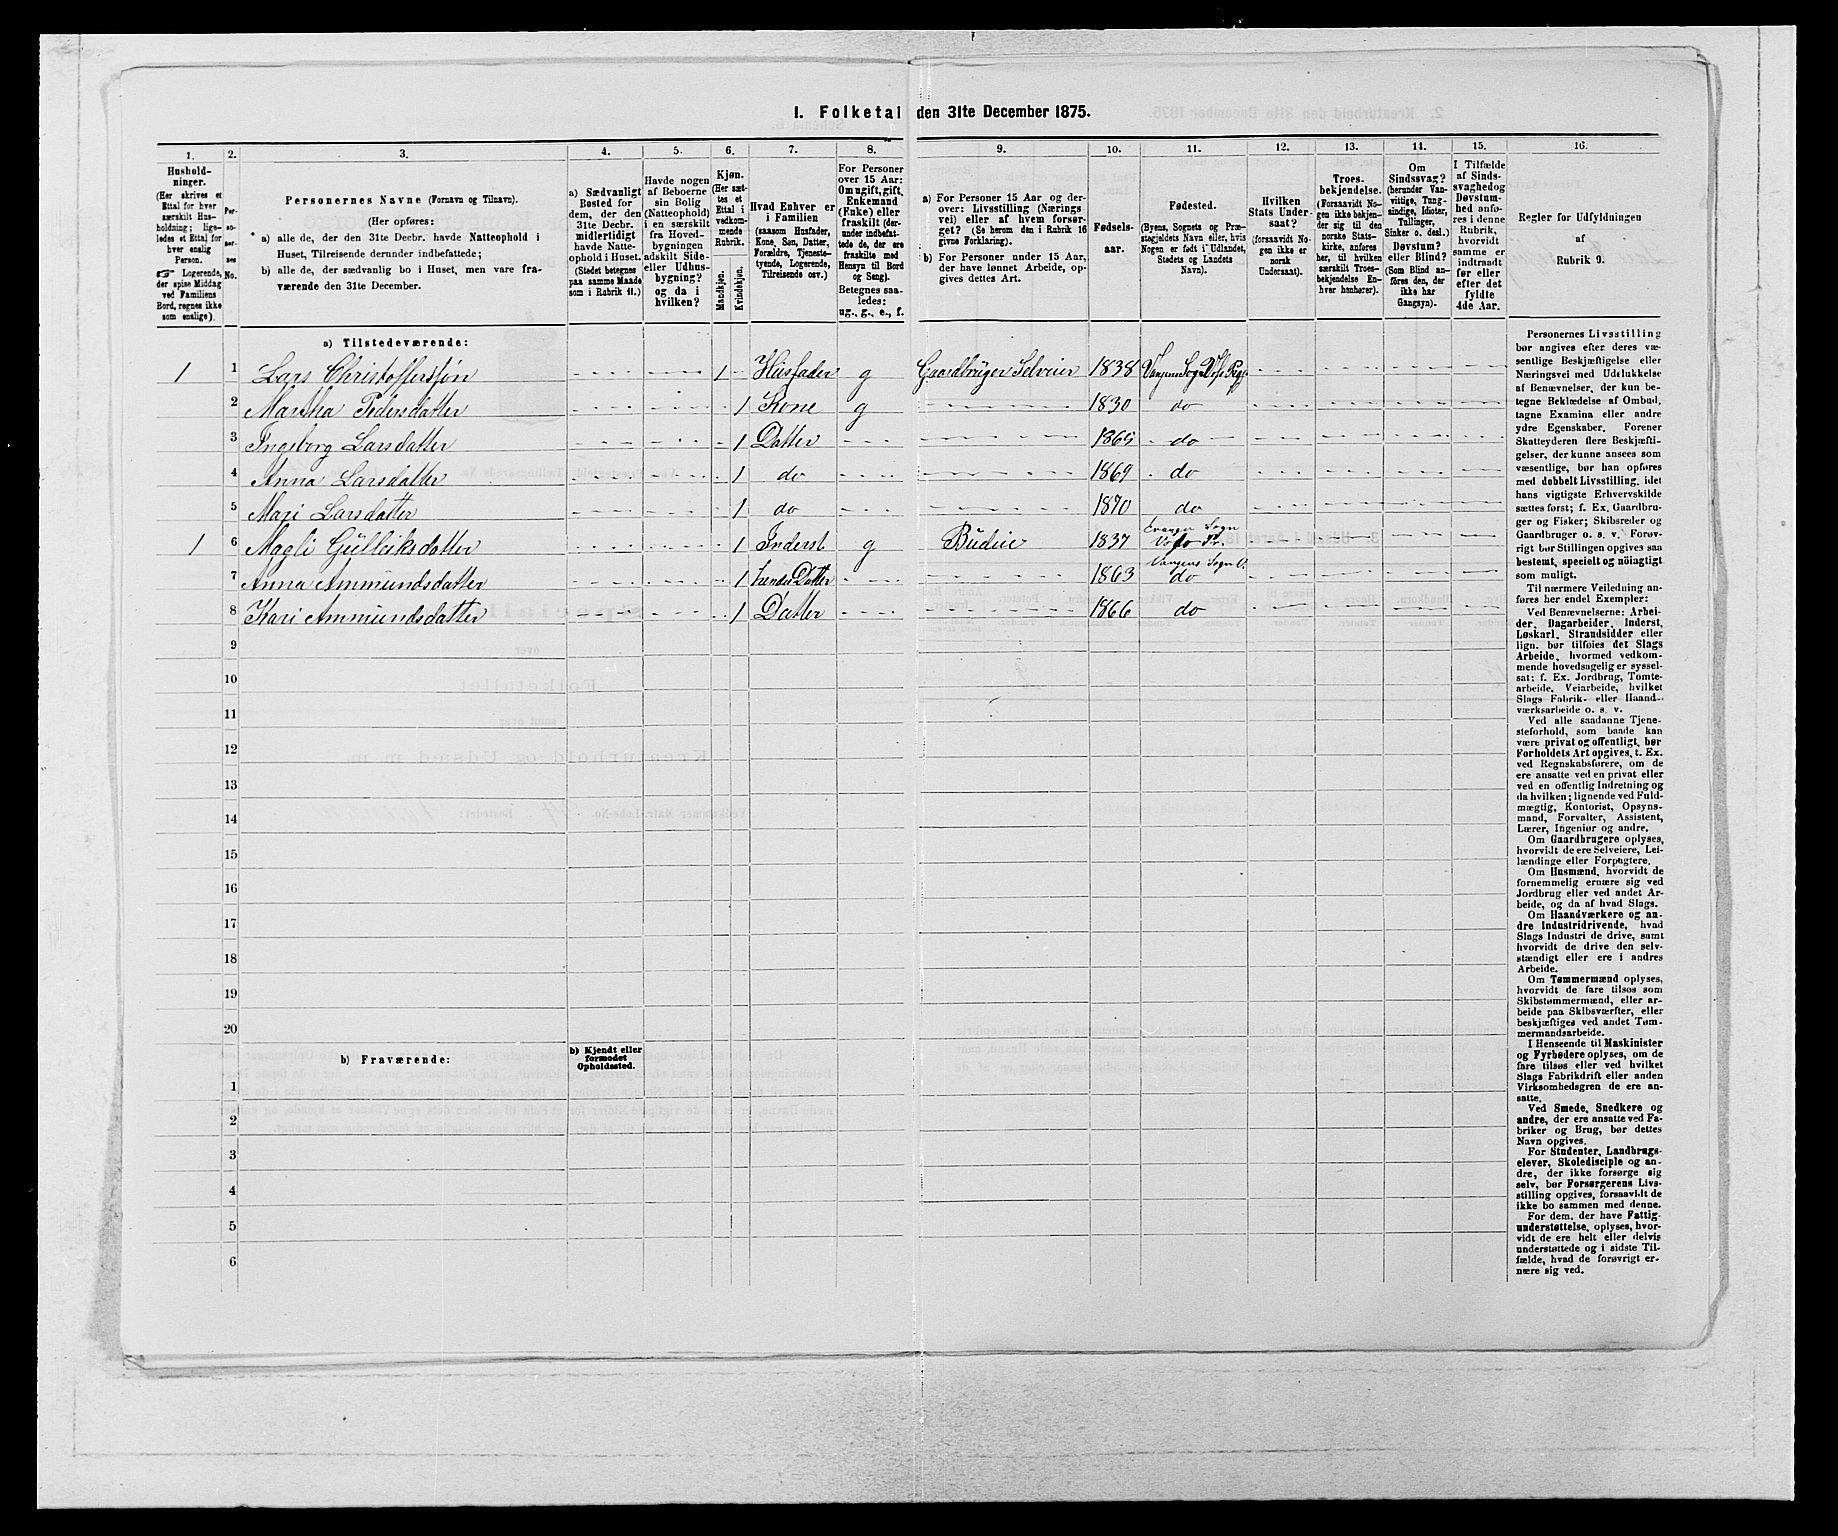 1. Folketal den 31te December 1875.
1. 2. 3. 4. 5. 6. 7. 8. 9. 10. 11. 12. 13. 14. 15. 16.
Hushold-
ninger.
(Her skrives et
Ettal for hver
særskilt Hus-
holdning; lige-
ledes et Ettal for
hver enslig
Person.
☞ Logerende,
der spise Middag
ved Familiens
Bord, regnes ikke
som enslige).
Per-
so-
ner-
nes
No.
Personernes Navne (Fornavn og Tilnavn).
(Her opføres:
a) alle de, der den 31te Decbr. havde Natteophold i
Huset, Tilreisende derunder indbefattede;
b) alle de, der sædvanlig bo i Huset, men vare fra-
værende den 31te December.
a) Sædvanligt
Bosted for
dem, der den
31te Decbr.
midlertidigt
havde Natte-
ophold i Huset.
(Stedet betegnes
paa samme Maade
som i Rubrik 11.)
Havde nogen
af Beboerne
sin Bolig
(Natteophold)
i en særskilt
fra Hoved-
bygningen
adskilt Side-
eller Udhus-
bygning?
og da i
hvilken?
Kjøn.
(Her sæt-
tes et
Ettal i
vedkom-
mende
Rubrik.
Mandkjøn.
Kvindekjøn.
Hvad Enhver er
i Familien
(saasom Husfader,
Kone, Søn, Datter,
Forældre, Tjeneste-
tyende, Logerende,
Tilreisende osv.)
For Personer
over 15 Aar:
Om ugift, gift,
Enkemand
(Enke) eller
fraskilt (der-
under indbefat-
tede de, der ere
fraskilte med
Hensyn til Bord
og Seng).
Betegnes saa-
ledes:
ug., g., e., f.
a) For Personer 15 Aar og der-
over: Livsstilling (Nærings
vei) eller af hvem forsør-
get? (Se herom den i Rubrik 16
givne Forklaring).
b) For Personer under 15 Aar,
der have lønnet Arbeide, op-
gives dettes Art.
Fødsels-
aar.
Fødested.
(Byens, Sognets og Præ-
stegjeldets Navn eller, hvis
Nogen er født i Udlandet,
Stedets og Landets
Navn).
Hvilken
Stats Under-
saat?
(forsaavidt No-
gen ikke er
norsk
Undersaat).
Troes-
bekjendelse.
(Forsaavidt No-
gen ikke bekjen-
der sig til den
norske Stats-
kirke, anføres
her, til hvilken
særskilt Troes-
bekjendelse En-
hver henhører).
Om
Sindssvag?
(herunder Van-
vittige, Tung-
sindige, Idioter,
Tullinger,
Sinker o. desl.)
Døvstum?
eller Blind?
(Som Blind an-
føres den, der
ikke har
Gangsyn).
I Tilfælde
af Sinds-
svaghed og
Døvstum-
hed anfø-
res i denne
Rubrik,
hvorvidt
samme er
indtraadt
før eller
efter det
fyldte
4de Aar.
Regler for Udfyldningen
af
Rubrik 9.
a) Tilstedeværende:
1 1 Lars Christoffersøn 1 Husfader g Gaardbruger Selveier 1838 Vangens Sogn
2 Martha Pedersdatter 1 Kone g 1830 do
3 Ingeborg Larsdatter 1 Datter 1865 do
4 Anna Larsdatter 1 do 1869 do
5 Mari Larsdatter 1 do 1870 do
1 6 Magli Gulleiksdatter 1 Inderst g Budeie 1837 Evanger Sogn
7 Anna Ammundsdatter 1 hendes Datter 1863 Vangens Sogn do
8 Kari Ammundsdatter 1 Datter 1866 do
9
10
11
12
13
14
15
16
17
18
19
20
b) Fraværende:
b) Kjendt eller
formodet
Opholdssted.
1
2
3
4
5
6
Personernes Livsstilling
bør angives efter deres væ-
sentlige Beskjæftigelse eller
Næringsvei med Udelukkelse
af Benævnelser, der kun be-
tegne Beklædelse af Ombud,
tagne Examina eller andre
ydre Egenskaber. Forener
Skatteyderen flere Beskjæfti-
gelser, der kunne ansees som
væsentlige, bør han opføres
med dobbelt Livsstilling, idet
hans vigtigste Erhvervskilde
sættes først; f. Ex. Gaardbru-
ger og Fisker; Skibsreder og
Gaardbruger o. s. v. Forøv-
rigt bør Stillingen opgives saa
bestemt, specielt og nøiagtigt
som muligt.
Til nærmere Veiledning an-
føres her endel Exempler:
Ved Benævnelserne: Arbei-
der, Dagarbeider, Inderst,
Løskarl, Strandsidder eller
lign. bør tilføies det Slags
Arbeide, hvormed vedkom-
mende hovedsagelig er syssel-
sat; f. Ex. Jordbrug, Tomte-
arbeide, Veiarbeide, hvilket
Slags Fabrik- eller Haand-
værksarbeide o. s. v.
Ved alle saadanne Tjene-
steforhold, som baade kan
være privat og offentligt, bør
Forholdets Art opgives, t. Ex.
ved Regnskabsførere, om de
ere ansatte ved en privat eller
ved en offentlig Indretning og
da hvilken; lignende ved Fuld-
mægtig, Kontorist, Opsyns-
mand, Forvalter, Assistent,
Lærer, Ingeniør og andre.
Om Gaardbrugere oplyses,
hvorvidt de ere Selveiere, Lei-
lændinge eller Forpagtere.
Om Husmænd, hvorvidt de
fornemmelig ernære sig ved
Jordbrug eller ved andet Ar-
beide, og da af hvad Slags.
Om Haandværkere og an-
dre Industridrivende, hvad
Slags Industri de drive, samt
hvorvidt de drive den selv-
stændigt eller ere i andres
Arbeide.
Om Tømmermænd oplyses,
hvorvidt de fare tilsøs som
Skibstømmermænd, eller ar-
beide paa Skibsværfter, eller
beskjæftiges ved andet Tøm-
mermandsarbeide.
I Henseende til Maskinister
og Fyrbødere oplyses, om de
fare tilsøs eller ved hvilket
Slags Fabrikdrift eller anden
Virksomhedsgren de ere an-
satte.
Ved Smede, Snedkere og
andre, der ere ansatte ved Fa-
briker og Brug, bør dettes
Navn opgives.
For Studenter, Landbrugs-
elever, Skoledisciple og an-
dre, der ikke forsørge sig
selv, bør Forsørgerens Livs-
stilling opgives, forsaavidt de
ikke bo sammen med denne.
For dem, der have Fattig-
understøttelse, oplyses, hvor-
vidt de ere helt eller delvis
understøttede og i sidste Til-
fælde, hvad de forøvrigt er-
nære sig ved.